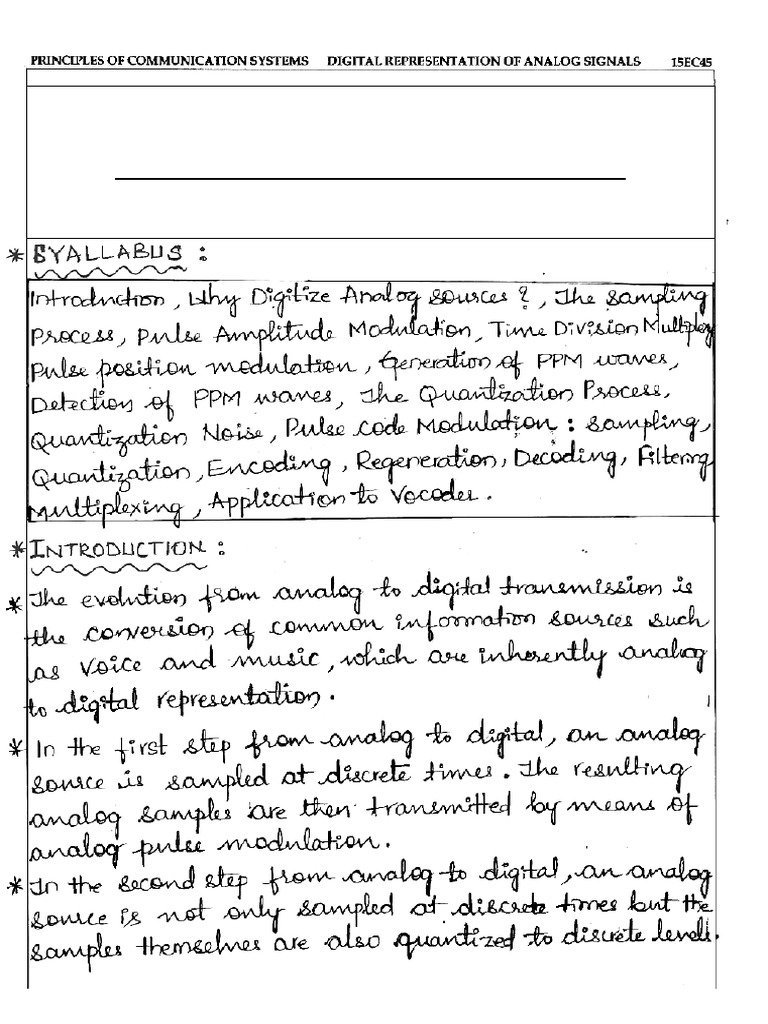 PRINCIPLES OF COMMUNICATION SYSTEMS DIGITAL REPRESENTATION OF ANALOG SIGNALS 15EC45
* SYALLABUS :
Introduction, Why Digitize Analog sources?, The Sampling
Process, Pulse Amplitude Modulation, Time Division Multiplex
Pulse position modulation, Generation of PPM waves,
Detection of PPM waves, The Quantization Process,
Quantization Noise, Pulse code Modulation : Sampling,
Quantization, Encoding, Regeneration, Decoding, Filtering
Multiplexing, Application to Vocoder.
* INTRODUCTION :
* The evolution from analog to digital transmission is
the conversion of common information sources such
as voice and music, which are inherently analog
to digital representation.
* In the first step from analog to digital, an analog
source is sampled at discrete times. The resulting
analog samples are then transmitted by means of
analog pulse modulation.
* In the second step from analog to digital, an analog
source is not only sampled at discrete times but the
samples themselves are also quantized to discrete levels.